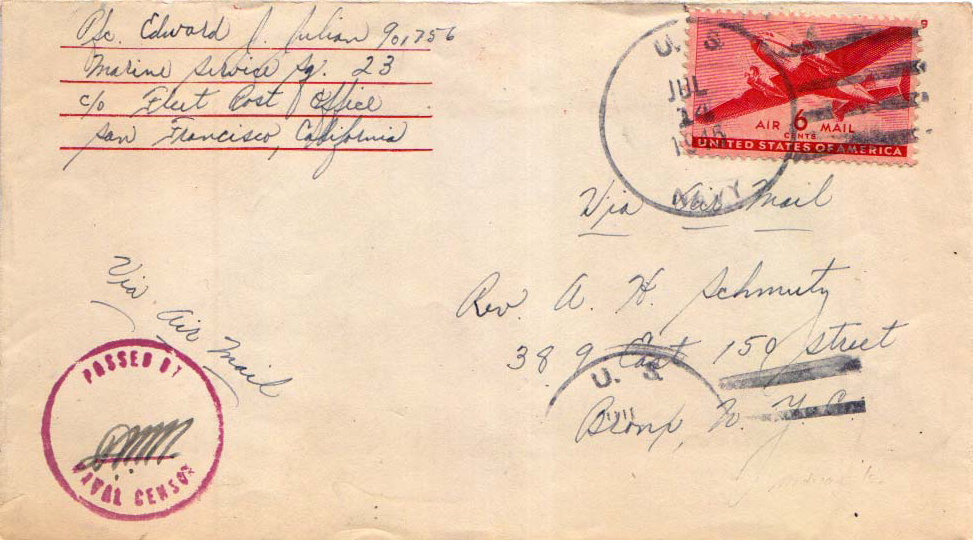 Pfc. Edward J. Julian 901756
Marine Service Sq. 23
c/o Fleet Post Office
San Francisco, California
U. S.
JUL
14
1945
NAVY
AIR 6 MAIL
CENTS
UNITED STATES OF AMERICA
Via Air Mail
Via Air Mail
Rev. A. H. Schmutz
389 East 150 Street
Bronx, N. Y. C.
U. S.
PASSED BY
NAVAL CENSOR